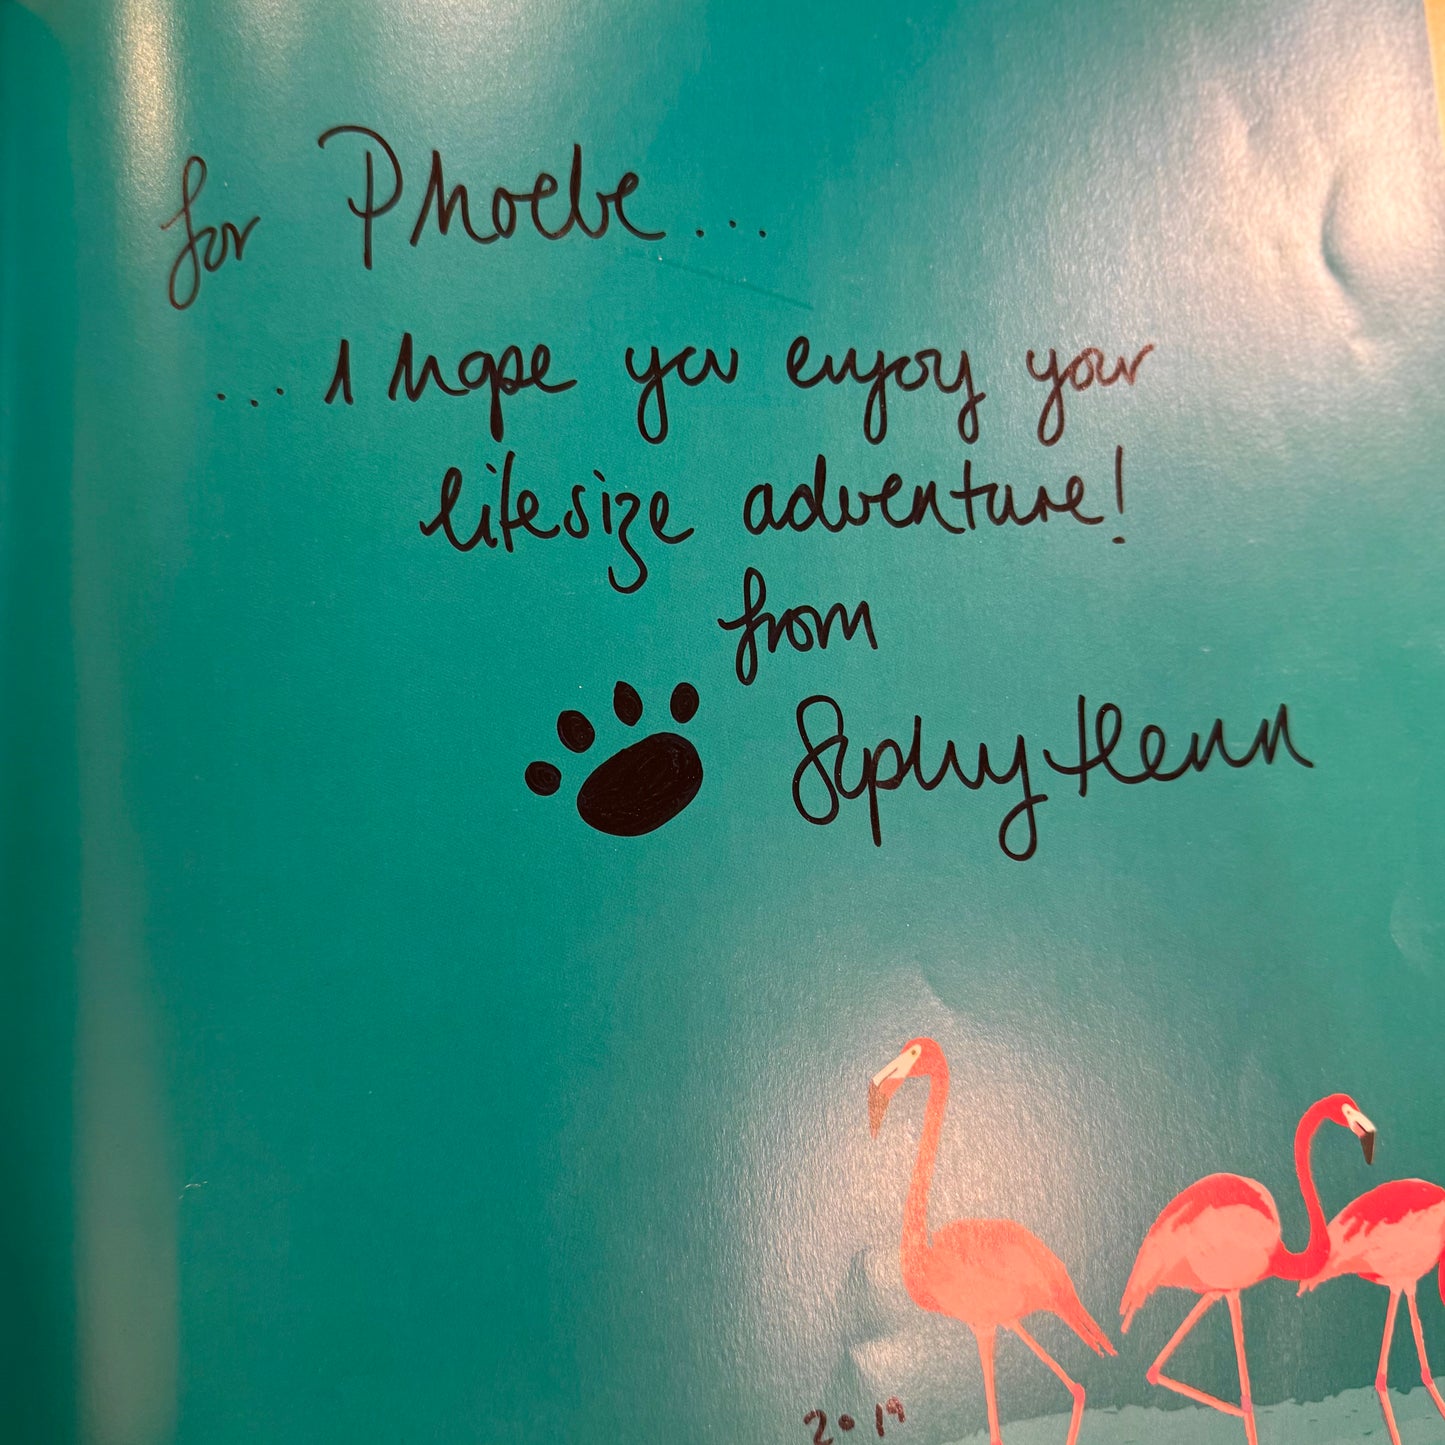 for Phoebe...
... I hope you enjoy your
lifesize adventure!
from
Sophy Henn
2019